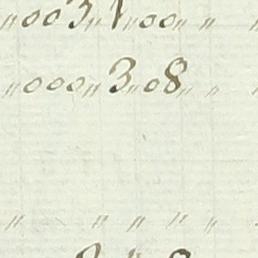 〃003〃1〃00〃 〃
〃000〃3〃08〃 〃
〃 〃 〃 〃 〃